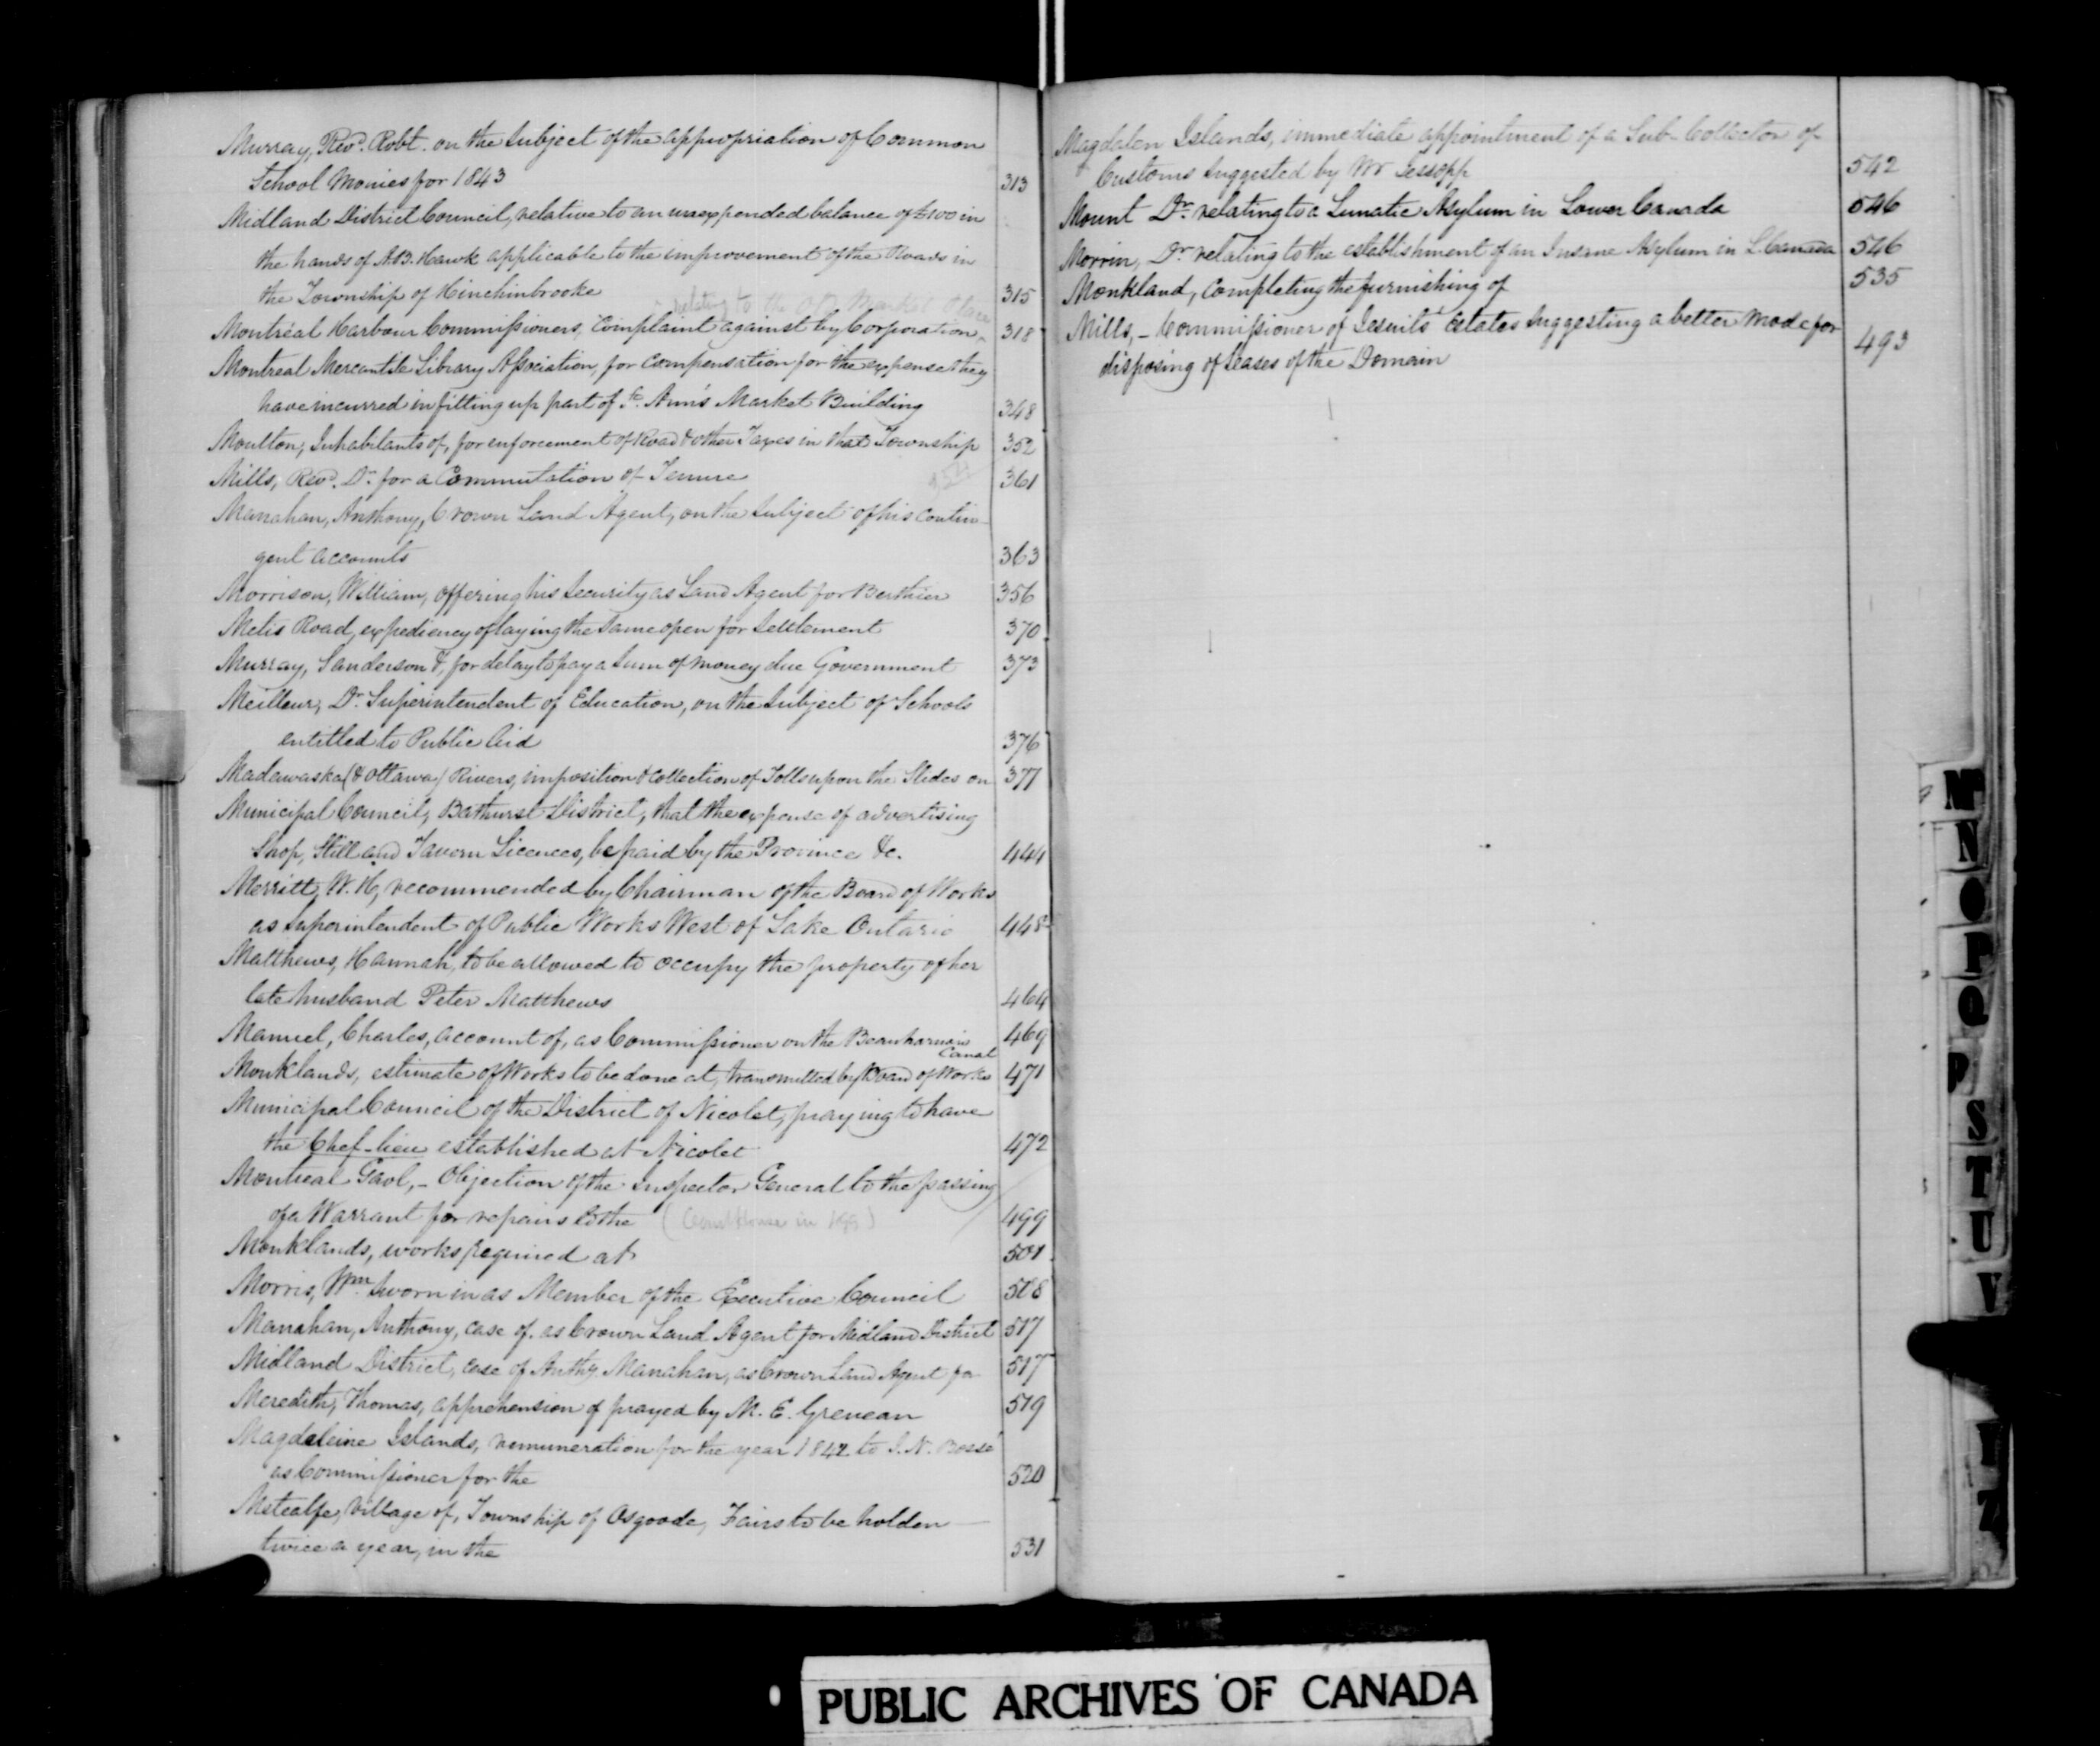 Murray, Revd. Robt. on the subject of the appropriation of Common
School Monies for 1843 313
Midland District Council, relative to an unexpended balance of £100 in
the hands of A.B. Hawk applicable to the improvement of the Roads in
the Township of Hinchinbrooke 315
relating to the Old Market Place
Montreal Harbour Commissioners, Complaint against by Corporation 318
Montreal Mercantile Library Association, for compensation for the expense they
have incurred in fitting up part of St. Ann's Market Building 348
Moulton, Inhabitants of, for enforcement of Road & other Taxes in that Township 352
Mills, Revd. Dr. for a Commutation of Tenure 361
Manahan, Anthony, Crown Land Agent, on the subject of his contin-
gent accounts 363
Morrison, William, offering his security as Land Agent for Berthier 356
Metis Road, expediency of laying the same open for settlement 370
Murray, Sanderson &, for delay to pay a sum of money due Government 373
Meilleur, Dr. Superintendent of Education, on the subject of Schools
entitled to Public Aid 376
Madawaska (& Ottawa) Rivers, imposition & collection of Tolls upon the Slides on 377
Municipal Council, Bathurst District, that the expense of advertising
Shop, Still and Tavern Licences, be paid by the Province &c. 444
Merritt, W. H, recommended by Chairman of the Board of Works
as superintendent of Public Works West of Lake Ontario 448
Matthews, Hannah, to be allowed to occupy the property of her
late husband Peter Matthews 464
Manuel, Charles, account of, as Commissioner on the Beauharnois
Canal 469
Monklands, estimate of Works to be done at, transmitted by Board of Works 471
Municipal Council of the District of Nicolet, praying to have
the Chef-lieu established at Nicolet 472
Montreal Gaol, - Objection of the Inspector General to the passing
of a Warrant for repairs to the (Court House in 499) 499
Monklands, works required at 501
Morris, Wm. sworn in as Member of the Executive Council 508
Manahan, Anthony, case of, as Crown Land Agent for Midland District 517
Midland District, case of Anthy. Manahan, as Crown Land Agent for 517
Meredith, Thomas, apprehension of prayed by M. E. Greveau 519
Magdeleine Islands, remuneration for the year 1842 to J. N. Bossé
as Commissioner for the 520
Metcalfe, Village of, Township of Osgoode, Fairs to be holden
twice a year, in the 531
Magdalen Islands, immediate appointment of a Sub-Collector of
Customs suggested by Mr Jessopp 542
Mount Dr. relating to a Lunatic Asylum in Lower Canada 546
Morrin, Dr. relating to the establishment of an Insane Asylum in L. Canada 546
Monkland, Completing the furnishing of 535
Mills, - Commissioner of Jesuits' Estates suggesting a better mode for
disposing of Leases of the Domain 493
M
N
O
P
Q
R
S
T
U
V
PUBLIC ARCHIVES OF CANADA